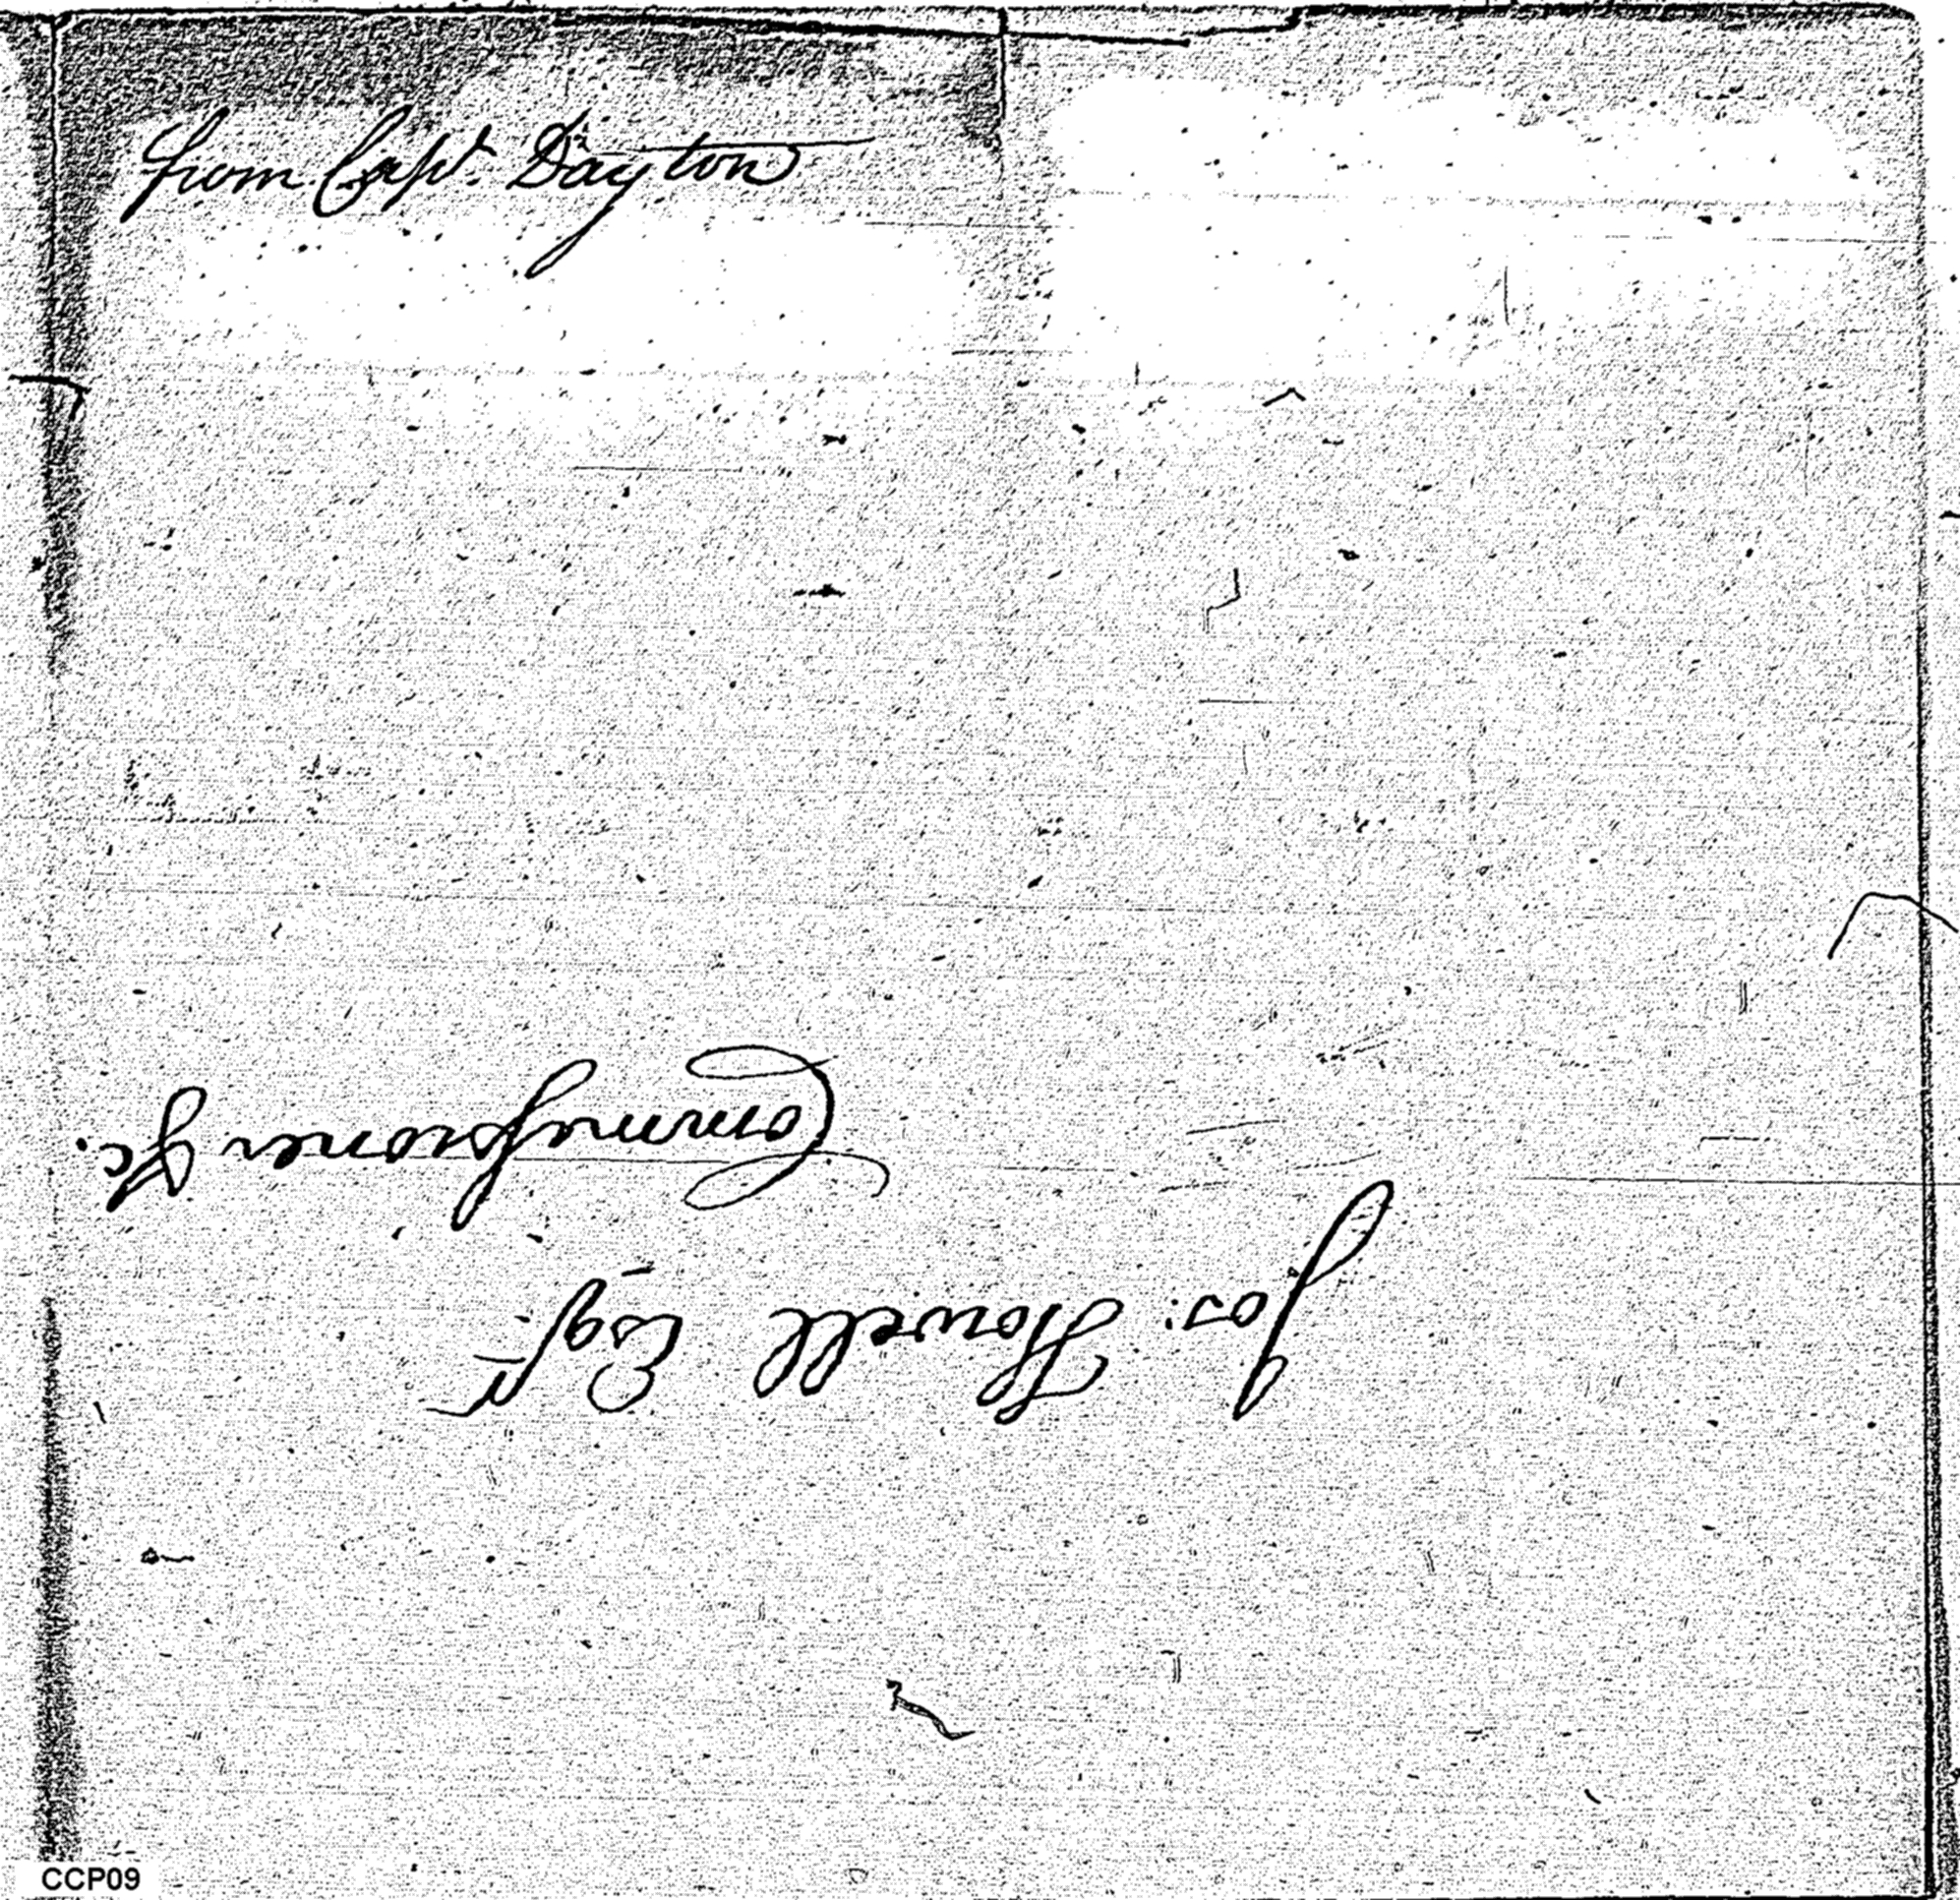 from Capt. Dayton
Jos: Howell Esqr.
Commissioner &c.
CCP09